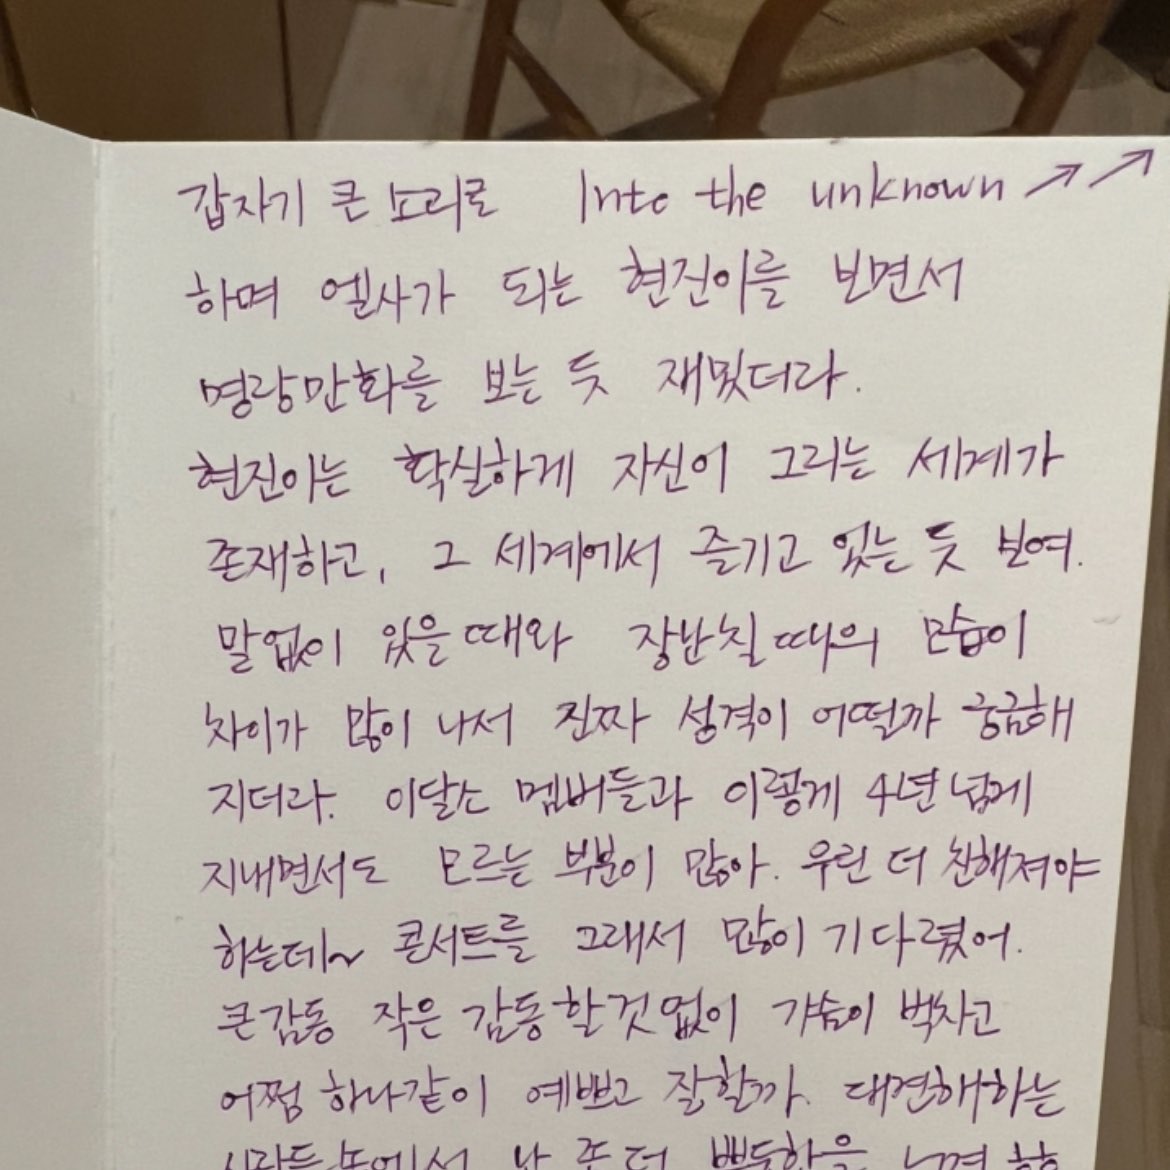 갑자기 큰 소리로 Into the unknown ↗ ↗
하며 엘사가 되는 현진이를 보면서
명랑만화를 보는 듯 재밌더라.
현진이는 확실하게 자신이 그리는 세계가
존재하고, 그 세계에서 즐기고 있는 듯 보여.
말없이 있을때와 장난칠때의 모습이
차이가 많이 나서 진짜 성격이 어떨까 궁금해
지더라. 이달소 멤버들과 이렇게 4년 넘게
지내면서도 모르는 부분이 많아. 우린 더 친해져야
하는데~ 콘서트를 그래서 많이 기다렸어.
큰감동 작은 감동할것없이 가슴이 벅차고
어쩜 하나같이 예쁘고 잘할까. 대견해하는
사람들 속에서 난 좀 더 뿌듯함을